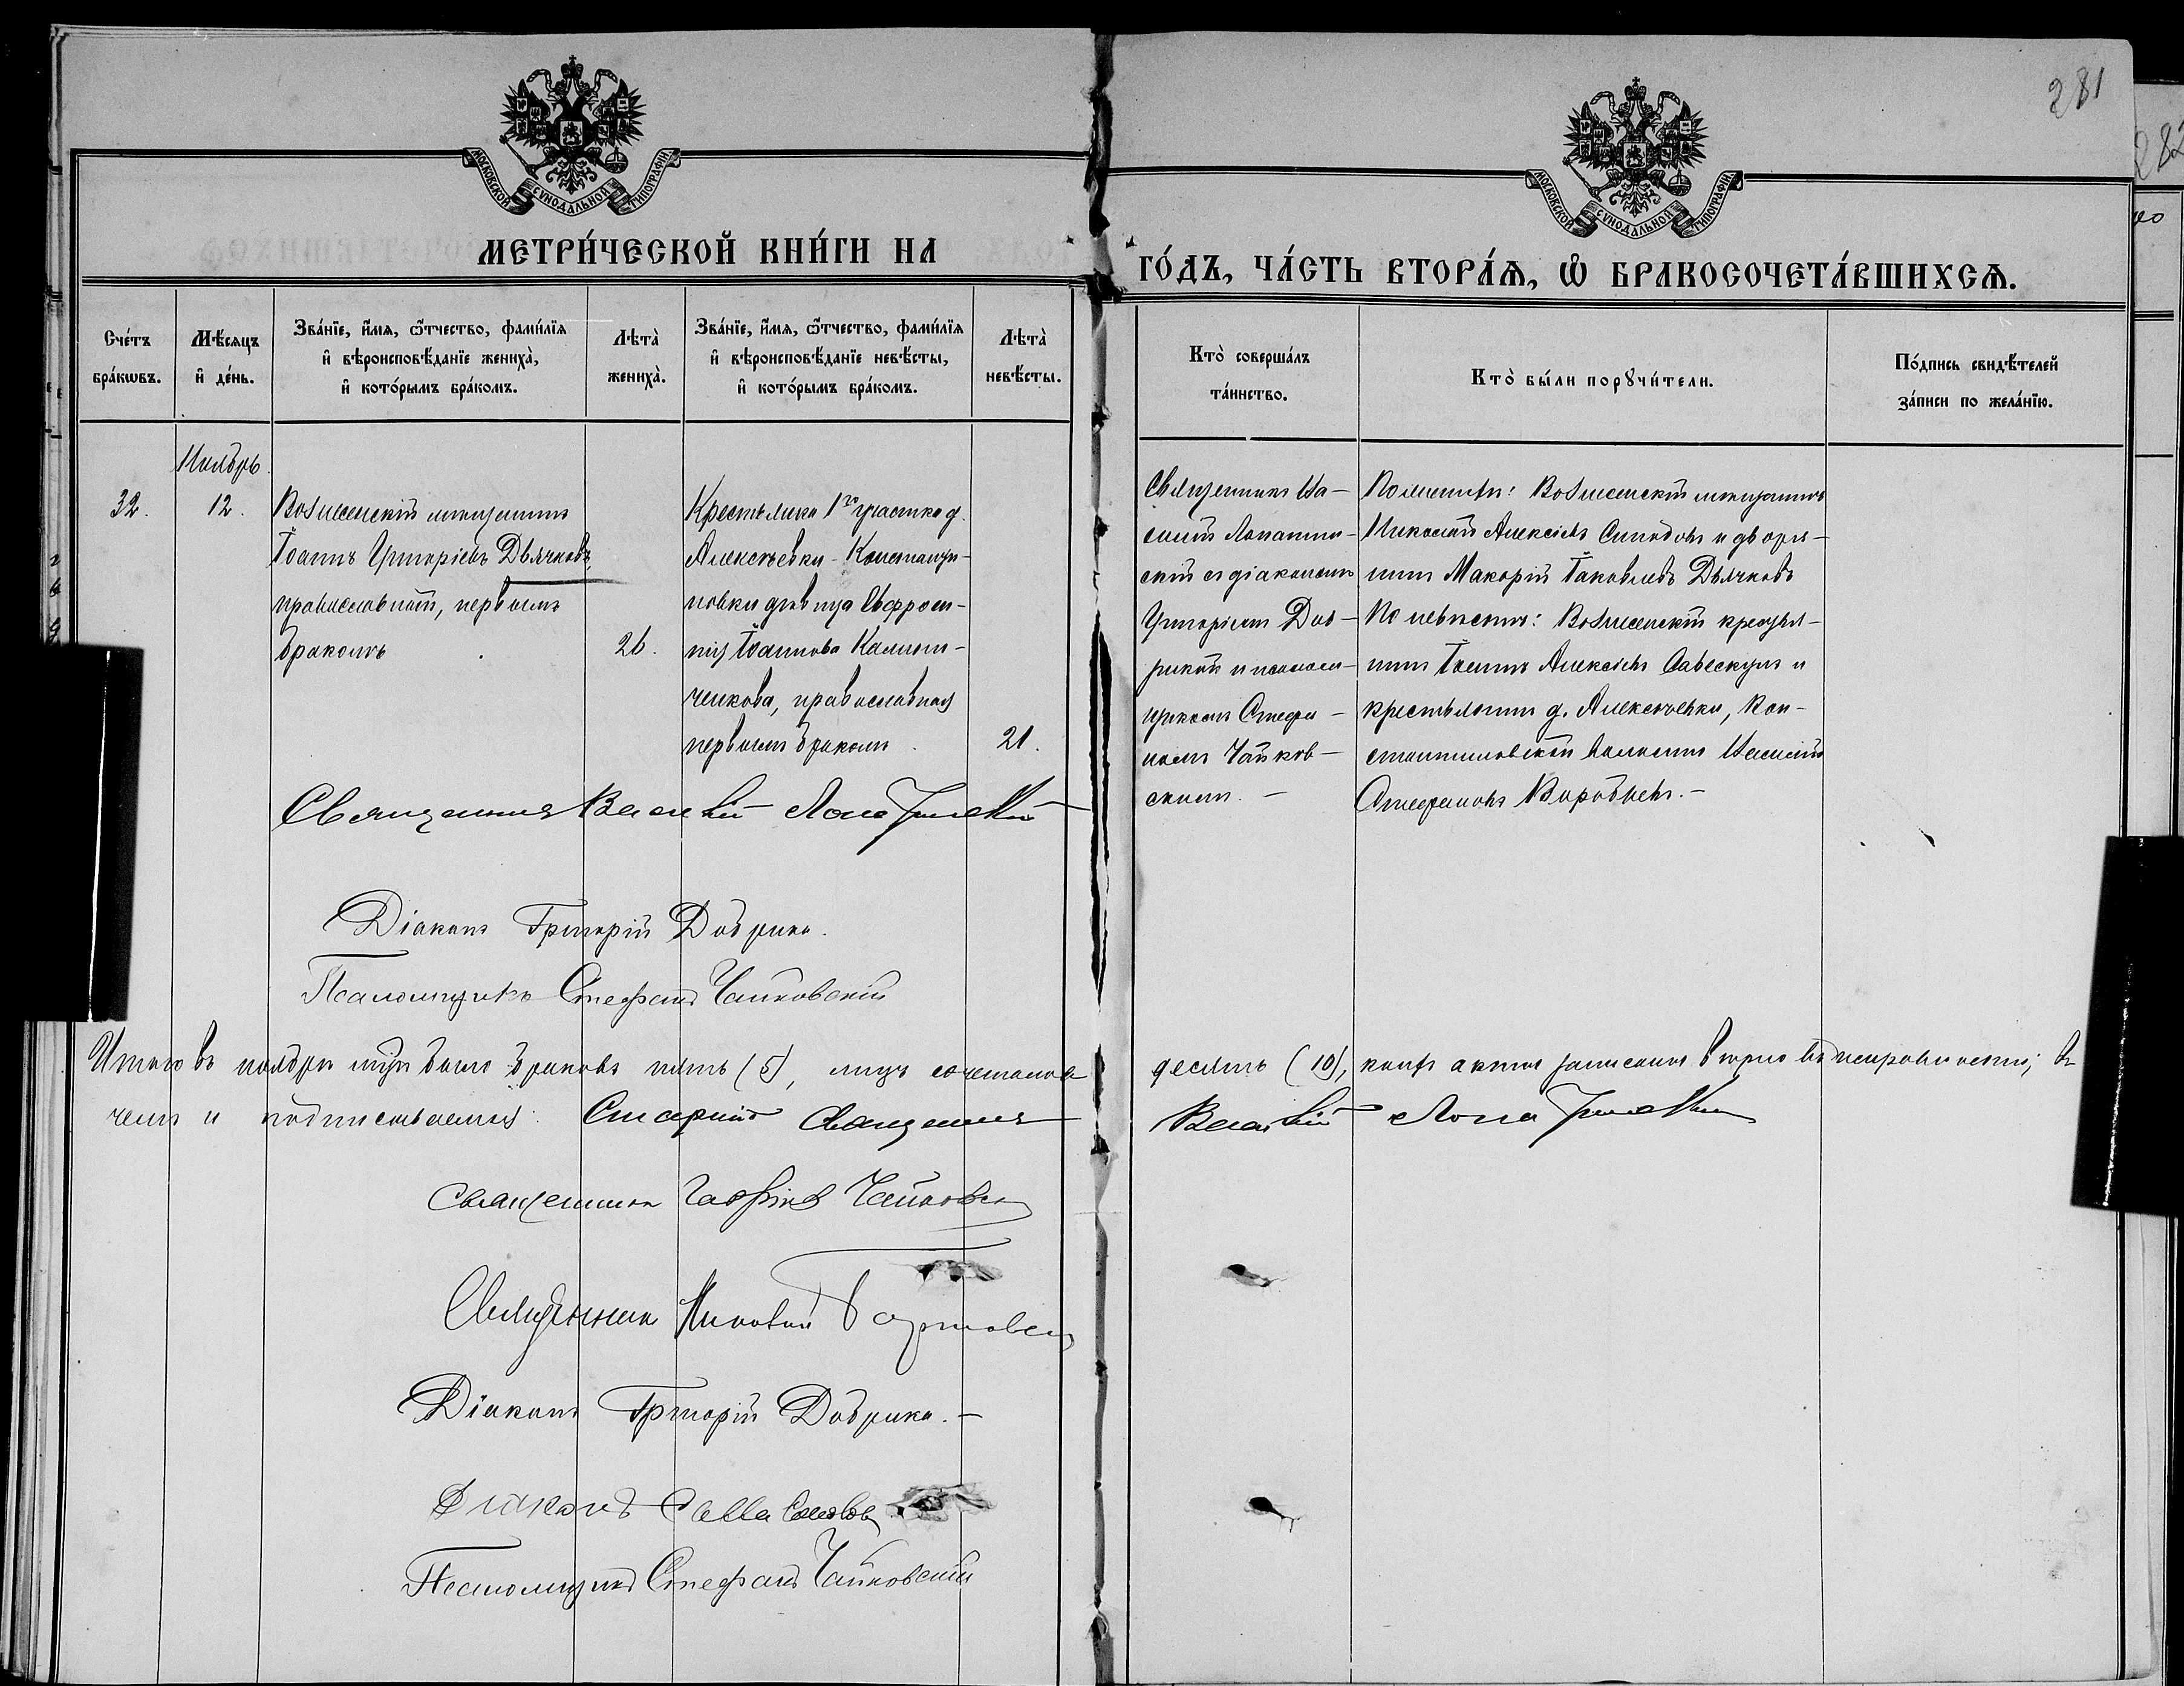 281
МОСКОВСКОЙ СѴНОДАЛЬНОЙ ТИПОГРАФІИ
МОСКОВСКОЙ СѴНОДАЛЬНОЙ ТИПОГРАФІИ
МЕТРИ́ЧЕСКОЙ КНИ́ГИ НА
ГО́ДЪ, ЧА́СТЬ ВТОРА́Ѧ, Ѡ҆ БРАКОСОЧЕТА́ВШИХСѦ.
Сче́тъ бра́кѡвъ.
Мѣ́сяцъ и҆ де́нь.
Зва́нїе, и҆́мѧ, ѻ҆́тчество, фами́лїѧ
и҆ вѣроисповѣ́данїе жениха̀,
и҆ кото́рымъ бра́комъ.
Лѣта̀
жениха̀.
Зва́нїе, и҆́мѧ, ѻ҆́тчество, фами́лїѧ
и҆ вѣроисповѣ́данїе невѣ́сты,
и҆ кото́рымъ бра́комъ.
Лѣта̀
невѣ́сты.
Кто̀ соверша́лъ
та́инство.
Кто̀ бы́ли порꙋчи́тели.
По́дпись свидѣ́телей
за́писи по жела́нїю.
Ноябрь
32.
12.
мѣщанинъ
Іоаннъ Григоріевъ Дьячковъ,
православный, первымъ
бракомъ
26.
Крестьянка 1го участка д.
Алексѣевки - Константи-
новки дѣвица Евфроси-
нія Іоаннова
ченкова, православная
первымъ бракомъ
21.
Священникъ Ва-
силій Лопатин-
скій съ діакономъ
Григоріемъ Доб-
рикой и псалом-
щикомъ Стефа-
номъ Чайков-
скимъ. -
По женихѣ: мѣщанинъ
Николай Алексіевъ и дворя-
нинъ Макарій Іаковлевъ Дьячковъ
По невѣстѣ: крестья-
нинъ Іоаннъ Алексіевъ и
крестьянинъ д. Алексѣевки, Кон-
стантиновской волости Василій
Стефановъ Воробьевъ. -
Священникъ Василій Лопатинскій
Діаконъ Григорій Добрика.
Псаломщикъ Стефанъ Чайковскій
Итого въ ноябрѣ мцѣ было браковъ пять (5), лицъ сочетавш
десять (10), коихъ акты записаны вѣрно и исправности; въ
чемъ и подписываемся: Старшій Священникъ
Василій Лопатинскій
Священникъ Гавріилъ
Священникъ Николай
Діаконъ Григорій Добрика. -
Діаконъ Савва
Псаломщикъ Стефанъ Чайковскій